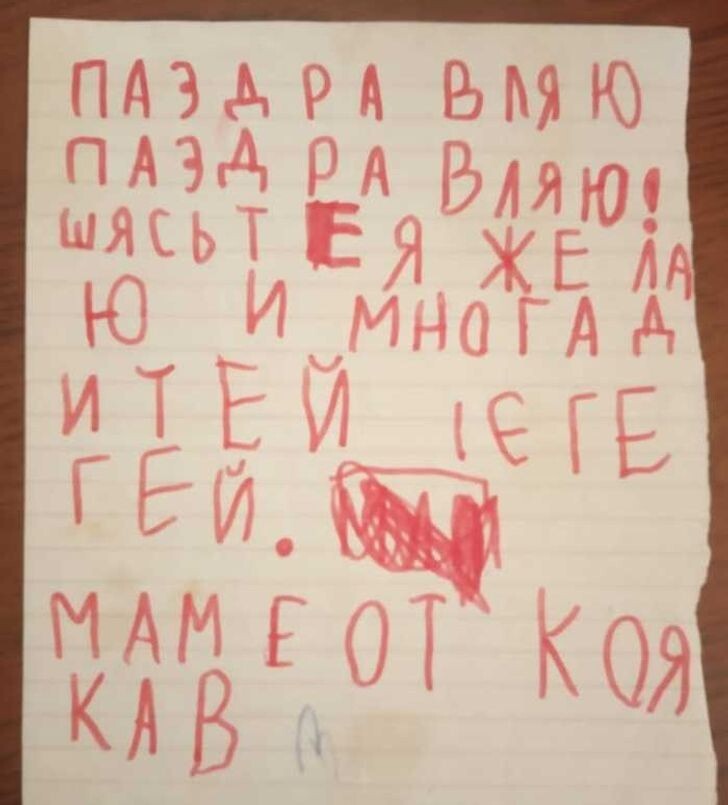 ПАЗДРА ВЛЯЮ
ПАЗДРА ВЛЯЮ!
ШЯСЬТ ЕЯ ЖЕ ЛА
Ю И МНОГА Д
ИТЕЙ ІЄГЕ
ГЕЙ.
МАМЕ ОТ КОЯ
КАВ